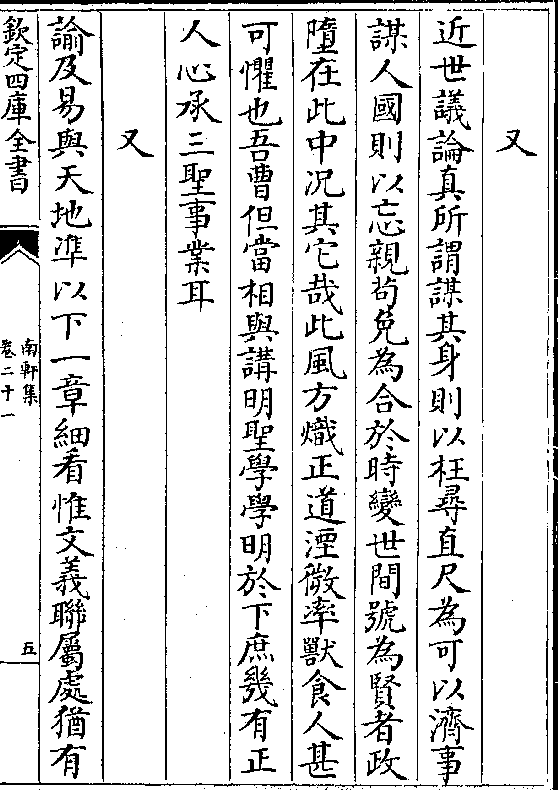 又
近世議論真所謂謀其身則以枉尋直尺為可以濟事
謀人國則以忘親茍免為合於時變世間號為賢者政
墮在此中況其它哉此風方熾正道湮微率獸食人甚
可懼也吾曹但當相與講明聖學學明於下庶幾有正
人心承三聖事業耳
又
諭及易與天地準以下一章細看惟文義聯屬處猶有
欽定四庫全書
南軒集
卷二十一
五